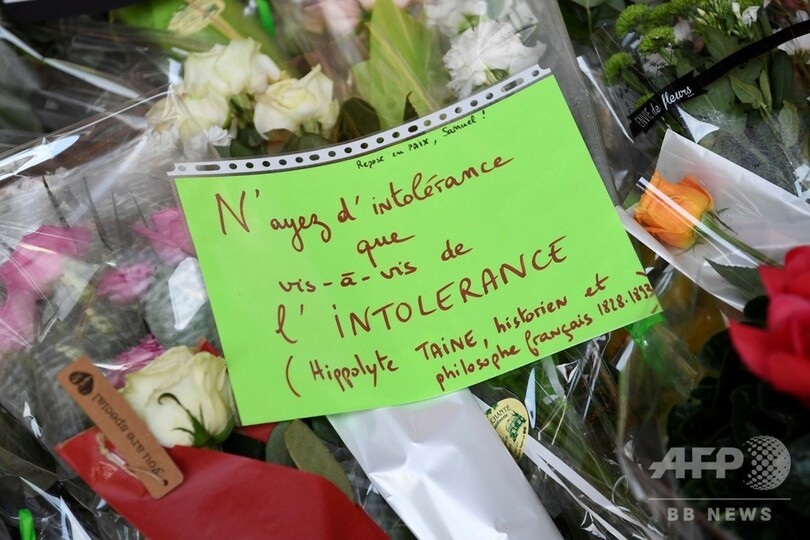 Repose en PAIX, Samuel !
N'ayez d'intolérance
que
vis-à-vis de
l'INTOLERANCE
(Hippolyte TAINE, historien et
philosophe français 1828.1893)
ENVIE de fleurs
you are special
CHANTÉ
AFP
BB NEWS